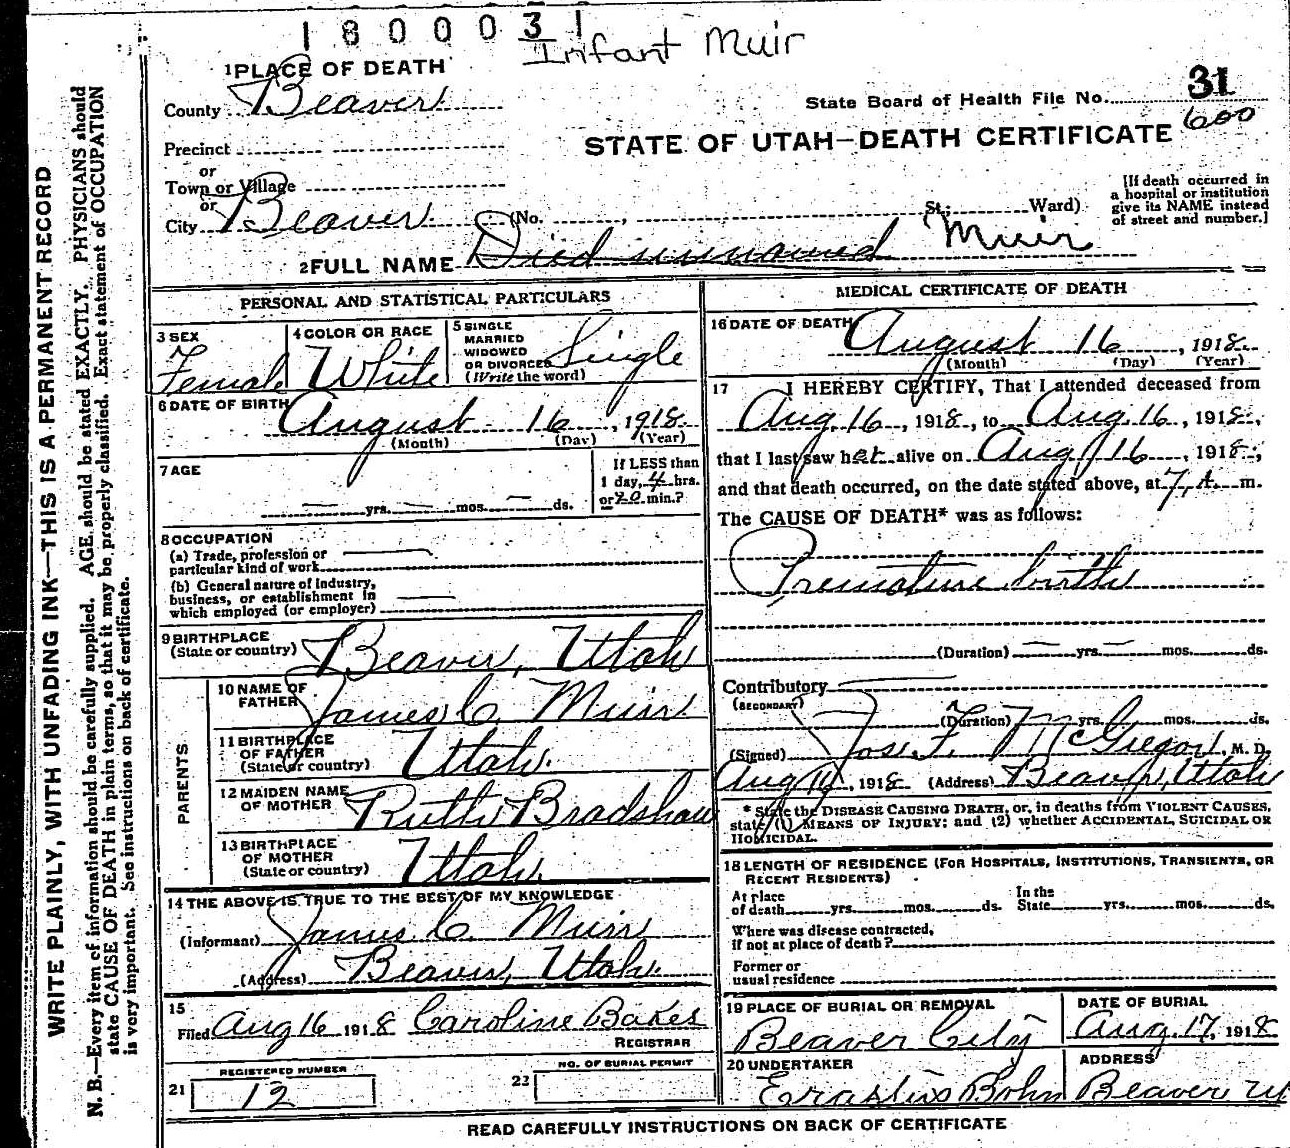 1800031
Infant Muir
1 PLACE OF DEATH
County Beaver
State Board of Health File No. 31
600
STATE OF UTAH—DEATH CERTIFICATE
Precinct
or
Town or Village
or
City Beaver (No. , St.; Ward)
[If death occurred in
a hospital or institution
give its NAME instead
of street and number.]
2 FULL NAME Died unnamed Muir
PERSONAL AND STATISTICAL PARTICULARS
3 SEX
Female
4 COLOR OR RACE
White
5 SINGLE
MARRIED
WIDOWED
OR DIVORCED
(Write the word)
Single
6 DATE OF BIRTH
August 16, 1918
(Month) (Day) (Year)
7 AGE
— yrs. — mos. — ds.
If LESS than
1 day, 4 hrs.
or 20 min.?
8 OCCUPATION
(a) Trade, profession or
particular kind of work
(b) General nature of industry,
business, or establishment in
which employed (or employer)
9 BIRTHPLACE
(State or country) Beaver, Utah
PARENTS
10 NAME OF
FATHER James C. Muir
11 BIRTHPLACE
OF FATHER
(State or country) Utah.
12 MAIDEN NAME
OF MOTHER Ruth Bradshaw
13 BIRTHPLACE
OF MOTHER
(State or country) Utah.
14 THE ABOVE IS TRUE TO THE BEST OF MY KNOWLEDGE
(Informant) James C. Muir
(Address) Beaver, Utah.
15
Filed Aug 16 1918 Caroline Baker
REGISTRAR
21 REGISTERED NUMBER
12
22 NO. OF BURIAL PERMIT
MEDICAL CERTIFICATE OF DEATH
16 DATE OF DEATH
August 16, 1918
(Month) (Day) (Year)
17 I HEREBY CERTIFY, That I attended deceased from
Aug. 16, 1918, to Aug. 16, 1918,
that I last saw her alive on Aug 16, 1918,
and that death occurred, on the date stated above, at 7, A. m.
The CAUSE OF DEATH* was as follows:
Premature birth
(Duration) — yrs. — mos. ds.
Contributory
(SECONDARY)
(Duration) yrs. mos. ds.
(Signed) Jos. F. McGregor, M. D.
Aug 16, 1918 (Address) Beaver, Utah
* State the DISEASE CAUSING DEATH, or, in deaths from VIOLENT CAUSES,
state (1) MEANS OF INJURY; and (2) whether ACCIDENTAL, SUICIDAL OR
HOMICIDAL.
18 LENGTH OF RESIDENCE (FOR HOSPITALS, INSTITUTIONS, TRANSIENTS, OR
RECENT RESIDENTS)
At place
of death yrs. mos. ds.
In the
State yrs. mos. ds.
Where was disease contracted,
if not at place of death?
Former or
usual residence
19 PLACE OF BURIAL OR REMOVAL
Beaver City
DATE OF BURIAL
Aug. 17, 1918
20 UNDERTAKER
Erastus Bohn
ADDRESS
Beaver Ut
READ CAREFULLY INSTRUCTIONS ON BACK OF CERTIFICATE
WRITE PLAINLY, WITH UNFADING INK—THIS IS A PERMANENT RECORD
N. B.—Every item of information should be carefully supplied. AGE should be stated EXACTLY. PHYSICIANS should
state CAUSE OF DEATH in plain terms, so that it may be properly classified. Exact statement of OCCUPATION
is very important. See instructions on back of certificate.